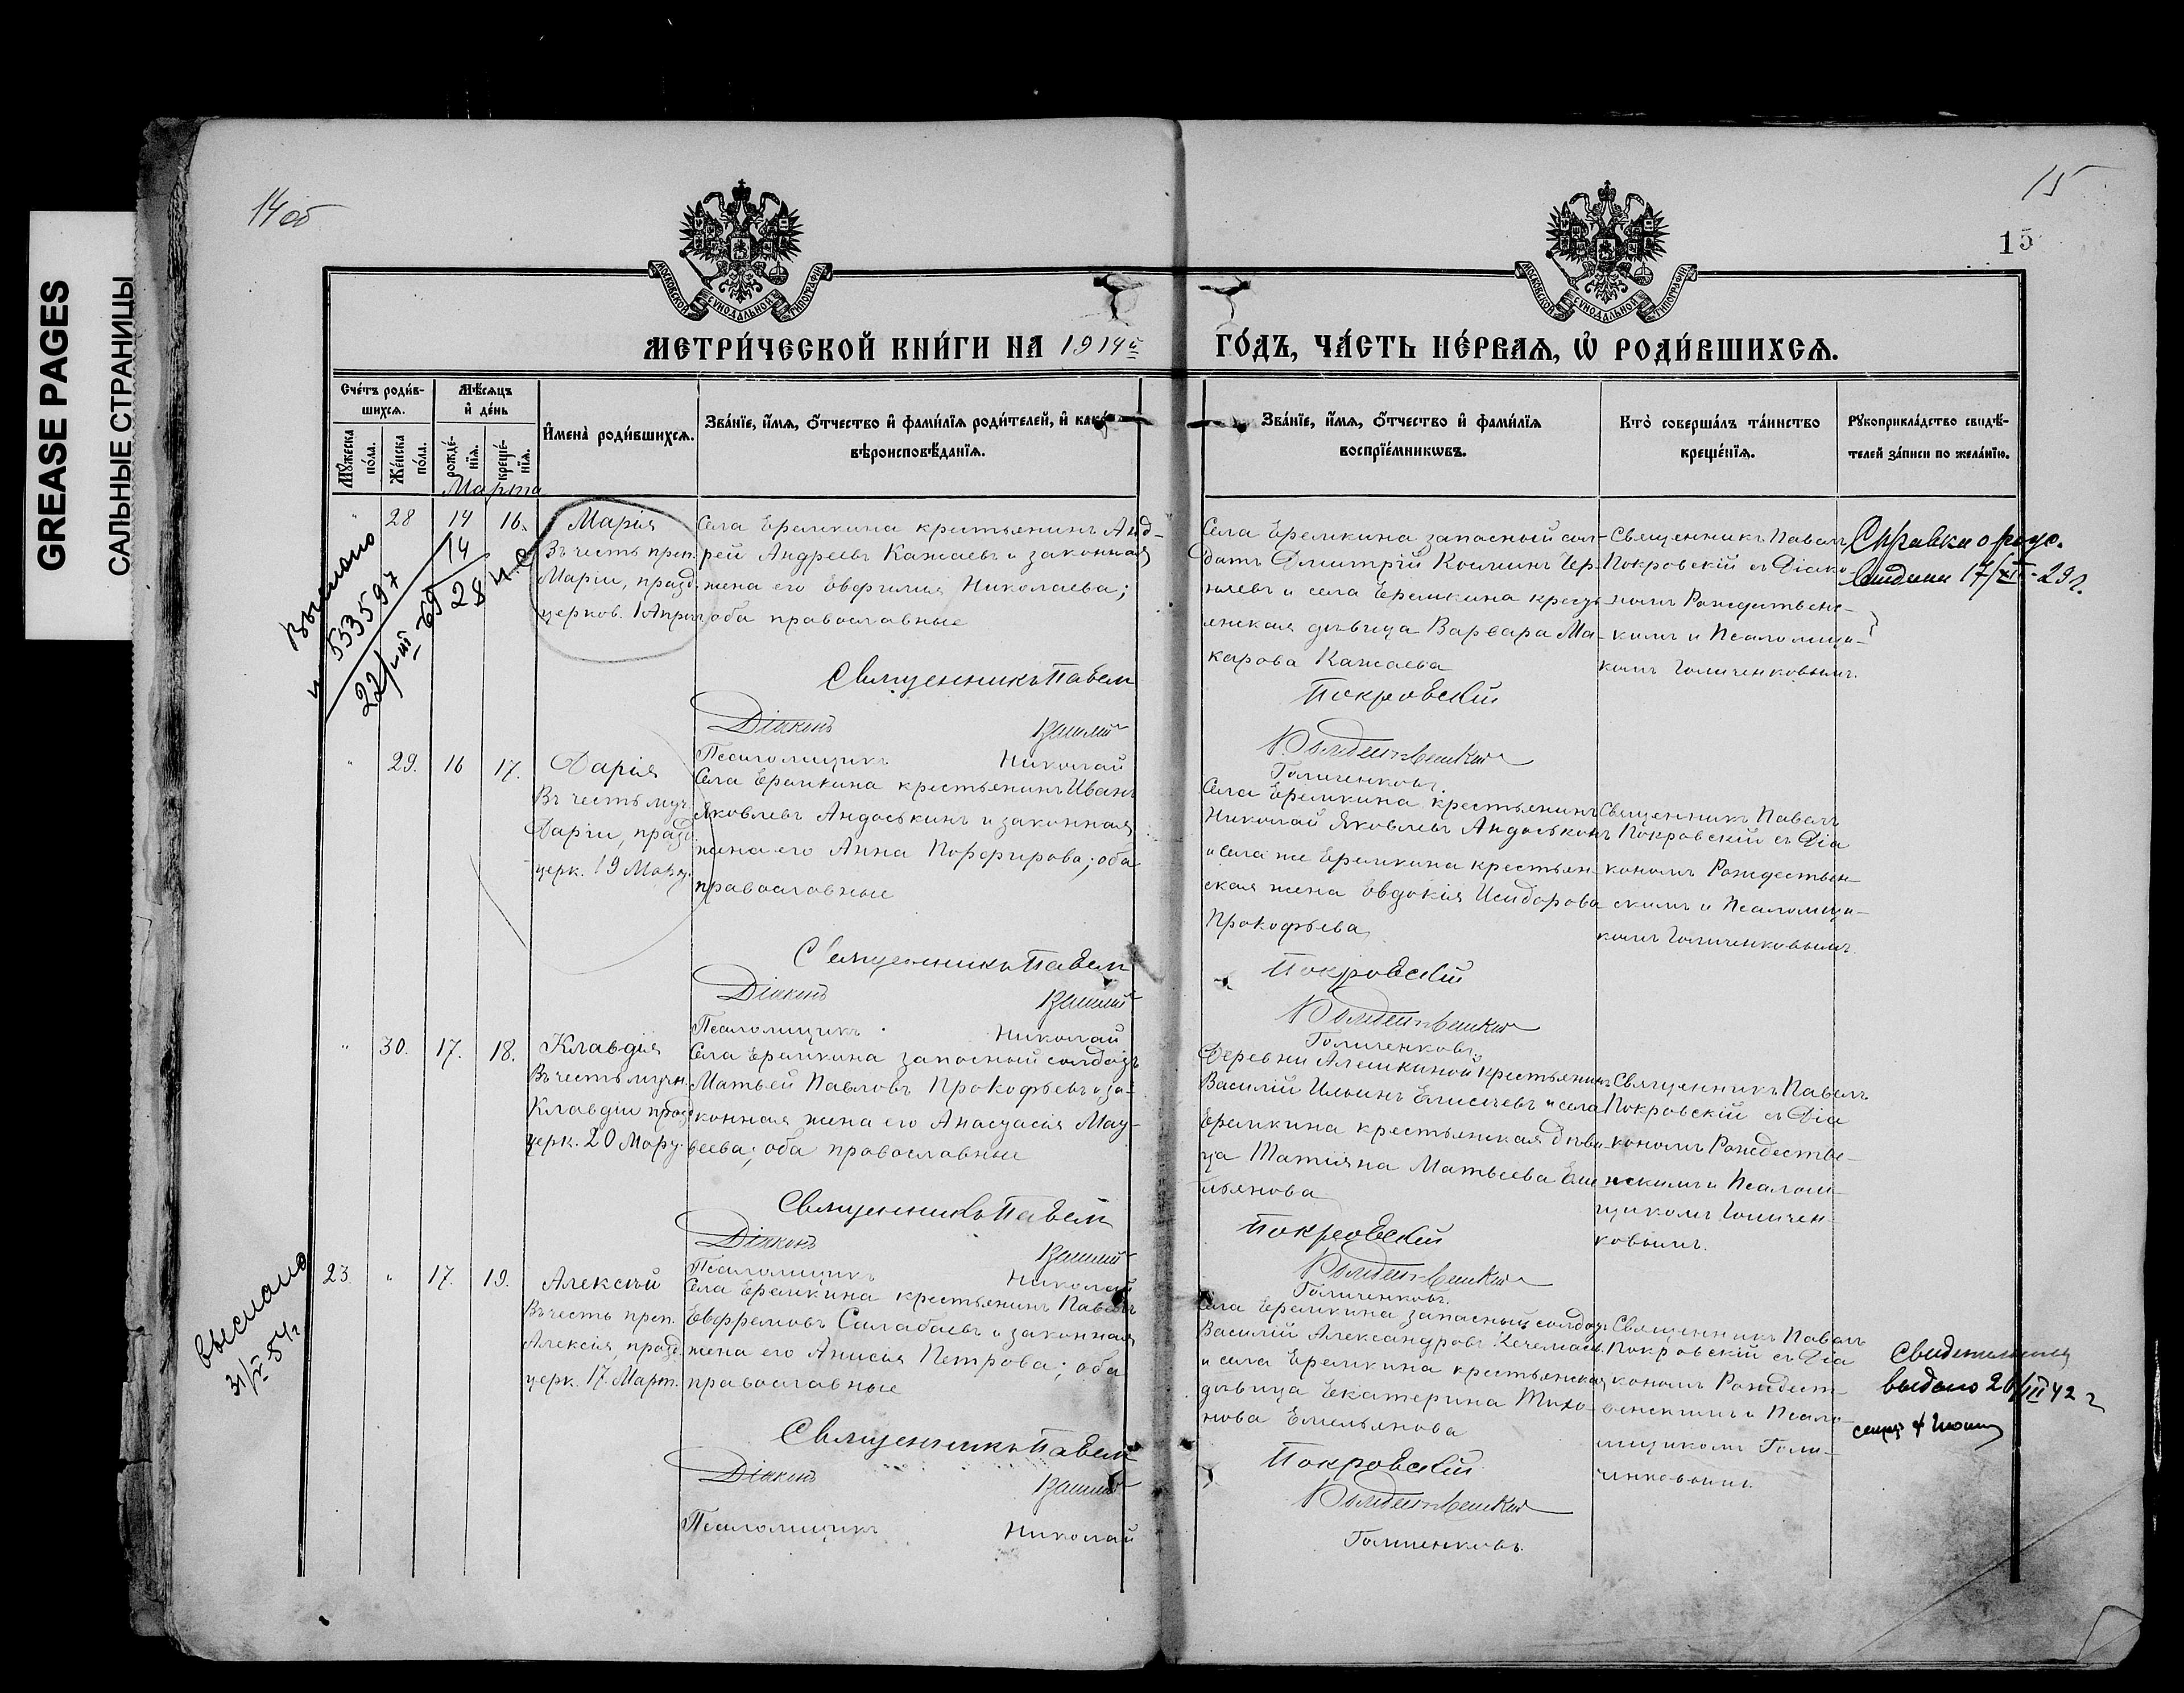 GREASE PAGES
САЛЬНЫЕ СТРАНИЦЫ
14 об
15
15
МОСКОВСКОЙ СУНОДАЛЬНОЙ ТИПОГРАФІИ
МОСКОВСКОЙ СУНОДАЛЬНОЙ ТИПОГРАФІИ
МЕТРИ́ЧЕСКОЙ КНИ́ГИ НА 1914й ГО́ДЪ, ЧА́СТЬ ПЕ́РВАѦ, Ѡ҆ РОДИ́ВШИХСѦ.
Сче́тъ роди́в-
шихсѧ.
Мꙋ́жеска по́ла.
Же́нска по́ла.
Мѣ́сѧцъ
и҆ де́нь
рожде́-нїѧ.
креще́-нїѧ.
И҆мена̀ роди́вшихсѧ.
Зва́нїе, и҆́мѧ, ѻ҆́тчество и҆ фами́лїѧ роди́телей, и҆ како́гѡ
вѣроисповѣ́данїѧ.
Зва́нїе, и҆́мѧ, ѻ҆́тчество и҆ фами́лїѧ
воспрїе́мникѡвъ.
Кто̀ соверша́лъ та́инство
креще́нїѧ.
Рꙋкоприкла́дство свидѣ́-
телей за́писи по жела́нїю.
Марта
" 28 14 16.
Марія
Въ честь преп.
Маріи, празд.
церков. 1 Апрѣл.
Села Еремкина крестьянинъ Анд-
рей Андреевъ Кажаевъ и законная
жена его Евфимия Николаева;
оба православные
Села Еремкина запасный сол-
датъ Дмитрій Козминъ Чер-
няевъ и села Еремкина кресть-
янская дѣвица Варвара Ма-
карова Кажаева
Священникъ Павелъ
Покровскій съ Діако-
номъ Рождествен-
скимъ и Псаломщи-
комъ Голиченковымъ.
Справка о рожд.
выдана 17/XII-29 г.
Выслано
14
533597
28 н.с
22/VIII 69
Священникъ Павелъ Покровскій
Діаконъ Василій Рождественскій
Псаломщикъ Николай Голиченковъ.
" 29. 16 17.
Дарія
Въ честь муч.
Даріи, празд.
церк. 19 Март.
Села Еремкина крестьянинъ Иванъ
Яковлевъ Андоськинъ и законная
жена его Анна Порфирова; оба
православные
Села Еремкина крестьянинъ
Николай Яковлевъ Андоськинъ
и села же Еремкина крестьян-
ская жена Евдокія Исидорова
Прокофьева
Священникъ Павелъ
Покровскій съ Діа
кономъ Рождествен-
скимъ и Псаломщи-
комъ Голиченковымъ.
Священникъ Павелъ Покровскій
Діаконъ Василій Рождественскій
Псаломщикъ Николай Голиченковъ.
" 30. 17. 18.
Клавдія
Въ честь мучен.
Клавдіи празд.
церк. 20 Март.
Села Еремкина запасный солдатъ
Матвей Павловъ Прокофьевъ и за-
конная жена его Анастасія Мат-
веева; оба православные
Деревни Алешкиной крестьянинъ
Василій Ильинъ Елисеевъ и села
Еремкина крестьянская дѣви-
ца Татіяна Матвеева Еме
льянова
Священникъ Павелъ
Покровскій съ Діа
кономъ Рождестве-
нскимъ и Псалом-
щикомъ Голичен-
ковымъ.
Священникъ Павелъ Покровскій
Діаконъ Василій Рождественскій
Псаломщикъ Николай Голиченковъ.
23. " 17. 19.
Алексѣй
Въ честь преп.
Алексія, празд.
церк. 17. Март.
Села Еремкина крестьянинъ Павелъ
Евфремовъ Салабаевъ и законная
жена его Анисія Петрова; оба
православные
Села Еремкина запасный солдатъ
Василій Александровъ
и села Еремкина крестьянская
дѣвица Екатерина Тихо-
нова Емельянова
Священникъ Павелъ
Покровскій съ Діа
кономъ Рождест-
венскимъ и Псало-
мщикомъ Голи-
ченковымъ.
выслано
31/V 54 г
выдано 26/III 42 г
Священникъ Павелъ Покровскій
Діаконъ Василій Рождественскій
Псаломщикъ Николай Голиченковъ.